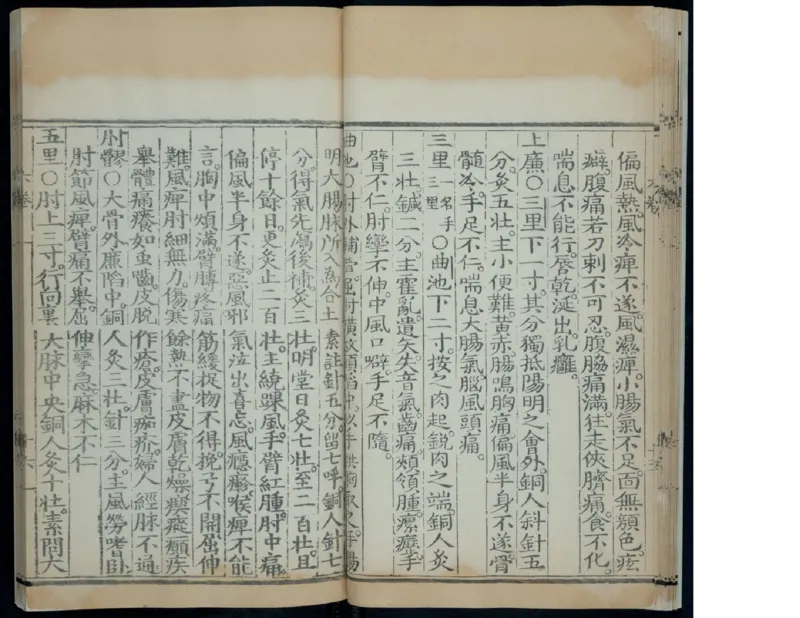 偏風熱風冷痺不遂風濕痺小腸氣不足面無顏色痃
癖腹痛若刀刺不可忍腹脇痛滿狂走俠臍痛食不化
喘息不能行唇乾涎出乳癰
上廉○三里下一寸其分獨抵陽明之會外銅人斜針五
分灸五壯主小便難黃赤腸鳴胸痛偏風半身不遂骨
髓冷手足不仁喘息大腸氣腦風頭痛
三里一名手三里○曲池下二寸按之肉起銳肉之端銅人灸
三壯鍼二分主霍亂遺矢失音氣齒痛頰頷腫瘰癧手
臂不仁肘攣不伸中風口噼手足不隨
曲池○肘外輔骨屈肘橫紋頭陷中以手拱胸取之手陽
明大腸脉所入為合土素註針五分留七呼銅人針七
分得氣先瀉後補灸三壯明堂日灸七壯至二百壯且
停十餘日更灸止二百壯主繞踝風手臂紅腫肘中痛
偏風半身不遂惡風邪氣泣出喜忘風癮疹喉痺不能
言胸中煩滿臂膊疼痛筋緩捉物不得挽弓不開屈伸
難風痺肘細無力傷寒餘熱不盡皮膚乾燥瘈瘲癲疾
舉體痛癢如虫嚙皮脫作瘡皮膚痂疥婦人經脉不通
肘髎○大骨外廉陷中銅人灸三壯針三分主風勞嗜臥
肘節風痺臂痛不舉屈伸攣急麻木不仁
五里○肘上三寸行向裏大脉中央銅人灸十壯素問大